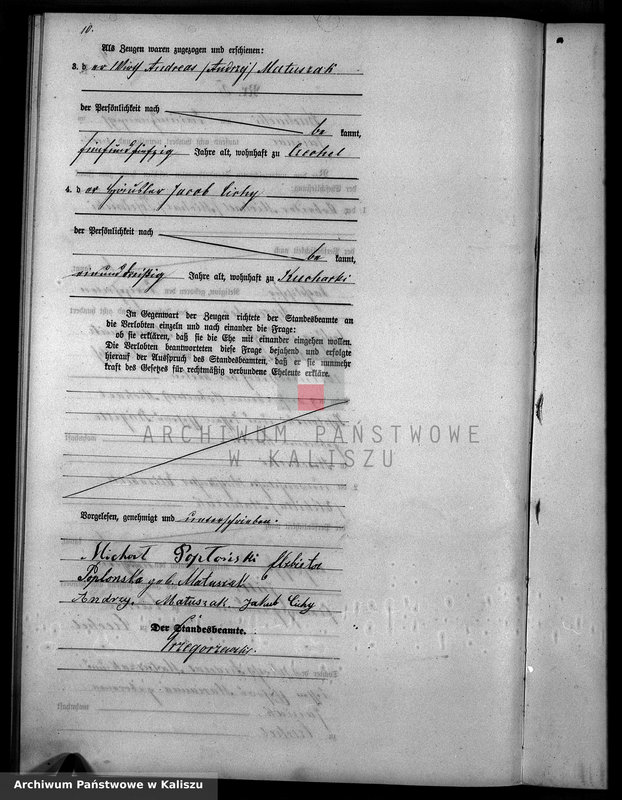 10.
Als Zeugen waren zugezogen und erschienen:
3. der Wirt Andreas /Andrzej/ Matuszak
der Persönlichkeit nach
be kannt,
fünfundfünfzig Jahre alt, wohnhaft zu Czechel
4. der Häusler Jacob Cichy
der Persönlichkeit nach
be kannt,
einunddreißig Jahre alt, wohnhaft zu Kucharki
In Gegenwart der Zeugen richtete der Standesbeamte an
die Verlobten einzeln und nach einander die Frage:
ob sie erklären, daß sie die Ehe mit einander eingehen wollen.
Die Verlobten beantworteten diese Frage bejahend und erfolgte
hierauf der Ausspruch des Standesbeamten, daß er sie nunmehr
kraft des Gesetzes für rechtmäßig verbundene Eheleute erkläre.
ARCHIWUM PAŃSTWOWE
W KALISZU
Vorgelesen, genehmigt und unterschrieben.
Michał Popłoński Elzbieta
Poplonska geb. Matuszak
Andrzej Matuszak. Jakub Cichy
Der Standesbeamte.
Grzegorzewski.
Archiwum Państwowe w Kaliszu